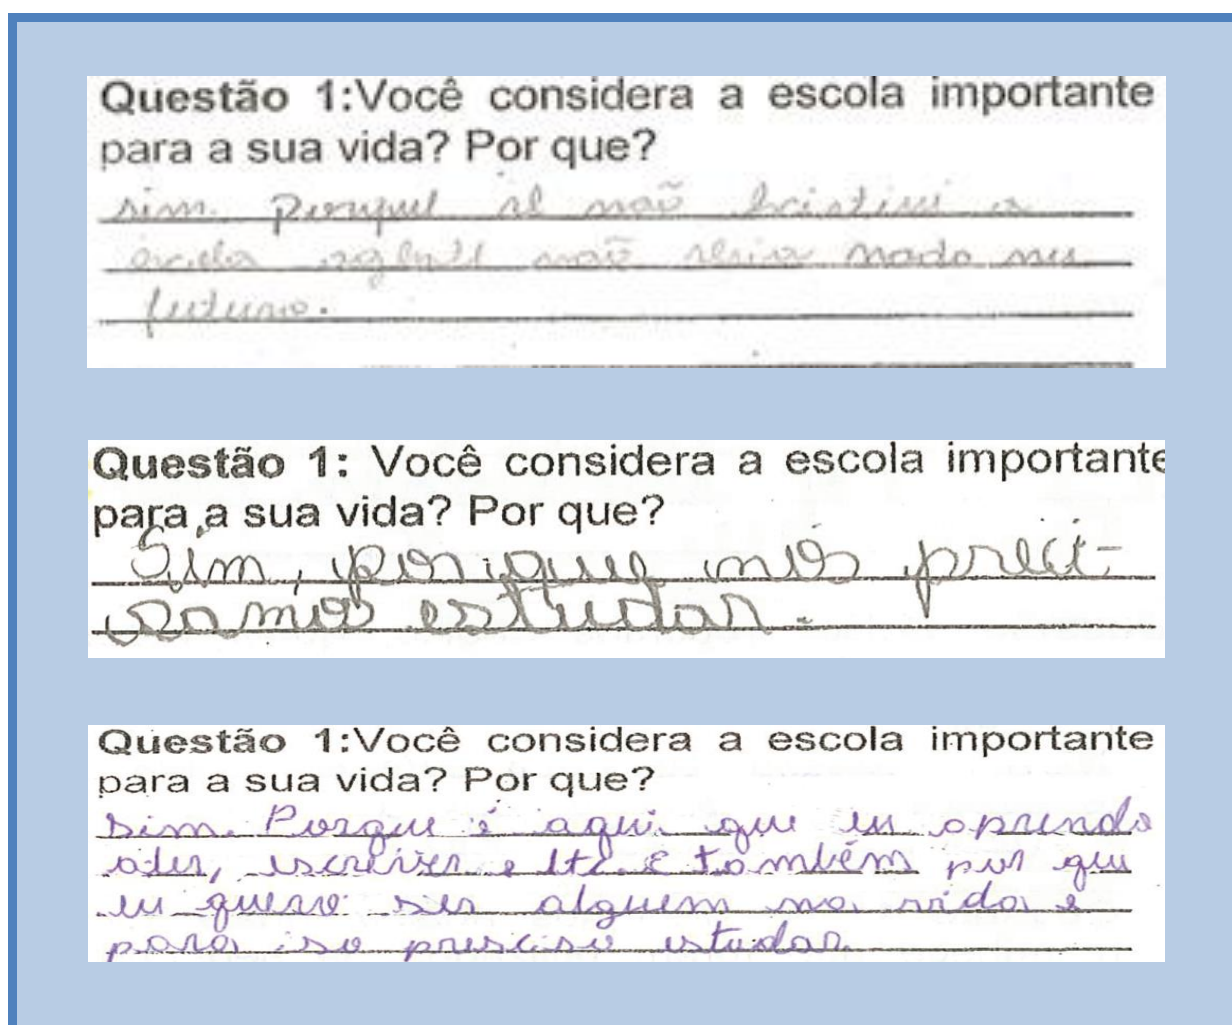 Questão 1:Você considera a escola importante
para a sua vida? Por que?
sim. Porque se não existisi a
escola agente não seria nada nu
futuro.
Questão 1: Você considera a escola importante
para a sua vida? Por que?
Sim, porque nós preci-
samos estudar.
Questão 1:Você considera a escola importante
para a sua vida? Por que?
sim. Porque é aqui que eu aprendo
a ler, escrever e etc. E também por que
eu quero ser alguem na vida e
para iso presciso estudar